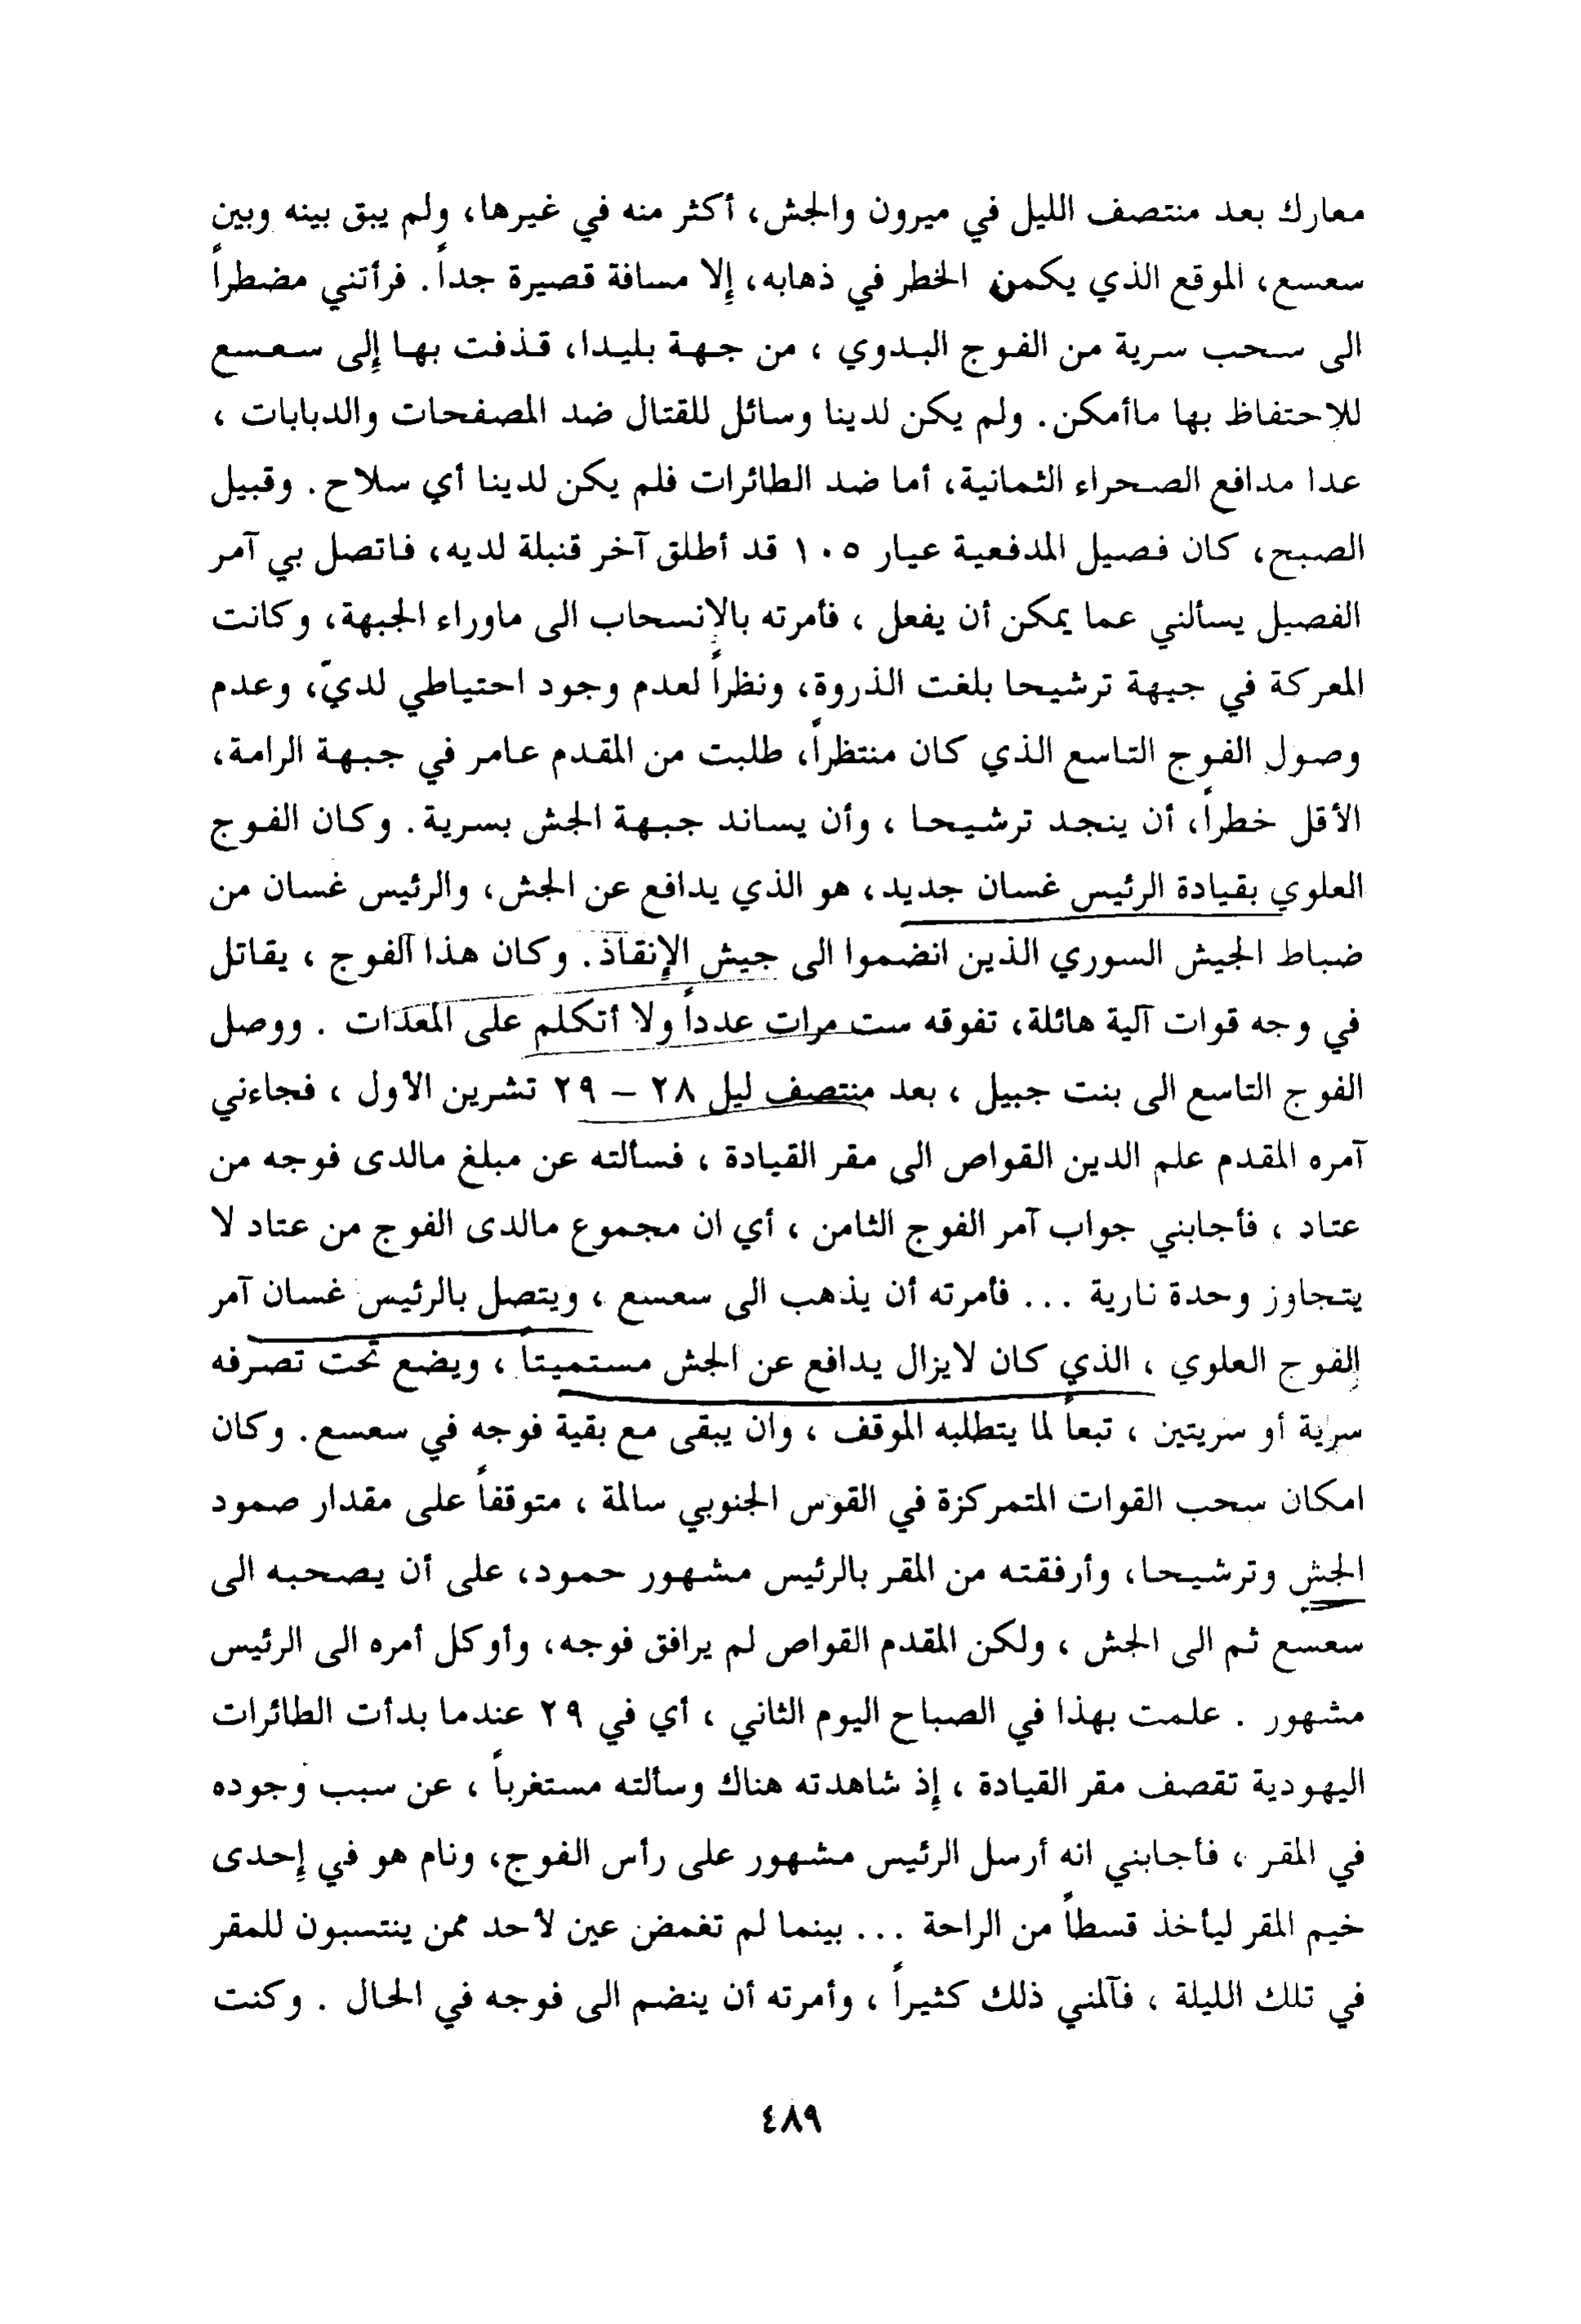 معارك بعد منتصف الليل في ميرون والجش، أكثر منه في غيرها، ولم يبق بينه وبين
سعسع، الموقع الذي يكمن الخطر في ذهابه، إلا مسافة قصيرة جداً. فرأتني مضطراً
الى سحب سرية من الفوج البدوي ، من جهة بليدا، قذفت بها إلى سعسع
للاحتفاظ بها ماأمكن. ولم يكن لدينا وسائل للقتال ضد المصفحات والدبابات ،
عدا مدافع الصحراء الثمانية، أما ضد الطائرات فلم يكن لدينا أي سلاح. وقبيل
الصبح، كان فصيل المدفعية عيار ١٠٥ قد أطلق آخر قنبلة لديه، فاتصل بي آمر
الفصيل يسألني عما يمكن أن يفعل ، فأمرته بالإنسحاب الى ماوراء الجبهة، وكانت
المعركة في جبهة ترشيحا بلغت الذروة، ونظراً لعدم وجود احتياطي لديّ، وعدم
وصول الفوج التاسع الذي كان منتظراً، طلبت من المقدم عامر في جبهة الرامة،
الأقل خطراً، أن ينجد ترشيحا ، وأن يساند جبهة الجش بسرية. وكان الفوج
العلوي بقيادة الرئيس غسان جديد، هو الذي يدافع عن الجش، والرئيس غسان من
ضباط الجيش السوري الذين انضموا الى جيش الإنقاذ. وكان هذا الفوج ، يقاتل
في وجه قوات آلية هائلة، تفوقه ست مرات عدداً ولا أتكلم على المعدات . ووصل
الفوج التاسع الى بنت جبيل ، بعد منتصف ليل ٢٨ – ٢٩ تشرين الأول ، فجاءني
آمره المقدم علم الدين القواص الى مقر القيادة ، فسألته عن مبلغ مالدى فوجه من
عتاد ، فأجابني جواب آمر الفوج الثامن ، أي ان مجموع مالدى الفوج من عتاد لا
يتجاوز وحدة نارية ... فأمرته أن يذهب الى سعسع ، ويتصل بالرئيس غسان آمر
الفوج العلوي ، الذي كان لايزال يدافع عن الجش مستميتاً ، ويضع تحت تصرفه
سرية أو سريتين ، تبعاً لما يتطلبه الموقف ، وان يبقى مع بقية فوجه في سعسع. وكان
امكان سحب القوات المتمركزة في القوس الجنوبي سالمة ، متوقفاً على مقدار صمود
الجش وترشيحا، وأرفقته من المقر بالرئيس مشهور حمود، على أن يصحبه الى
سعسع ثم الى الجش ، ولكن المقدم القواص لم يرافق فوجه، وأوكل أمره الى الرئيس
مشهور . علمت بهذا في الصباح اليوم الثاني ، أي في ٢٩ عندما بدأت الطائرات
اليهودية تقصف مقر القيادة ، إذ شاهدته هناك وسألته مستغرباً ، عن سبب وجوده
في المقر ، فأجابني انه أرسل الرئيس مشهور على رأس الفوج، ونام هو في إحدى
خيم المقر ليأخذ قسطاً من الراحة ... بينما لم تغمض عين لأحد ممن ينتسبون للمقر
في تلك الليلة ، فآلمني ذلك كثيراً ، وأمرته أن ينضم الى فوجه في الحال . وكنت
٤٨٩